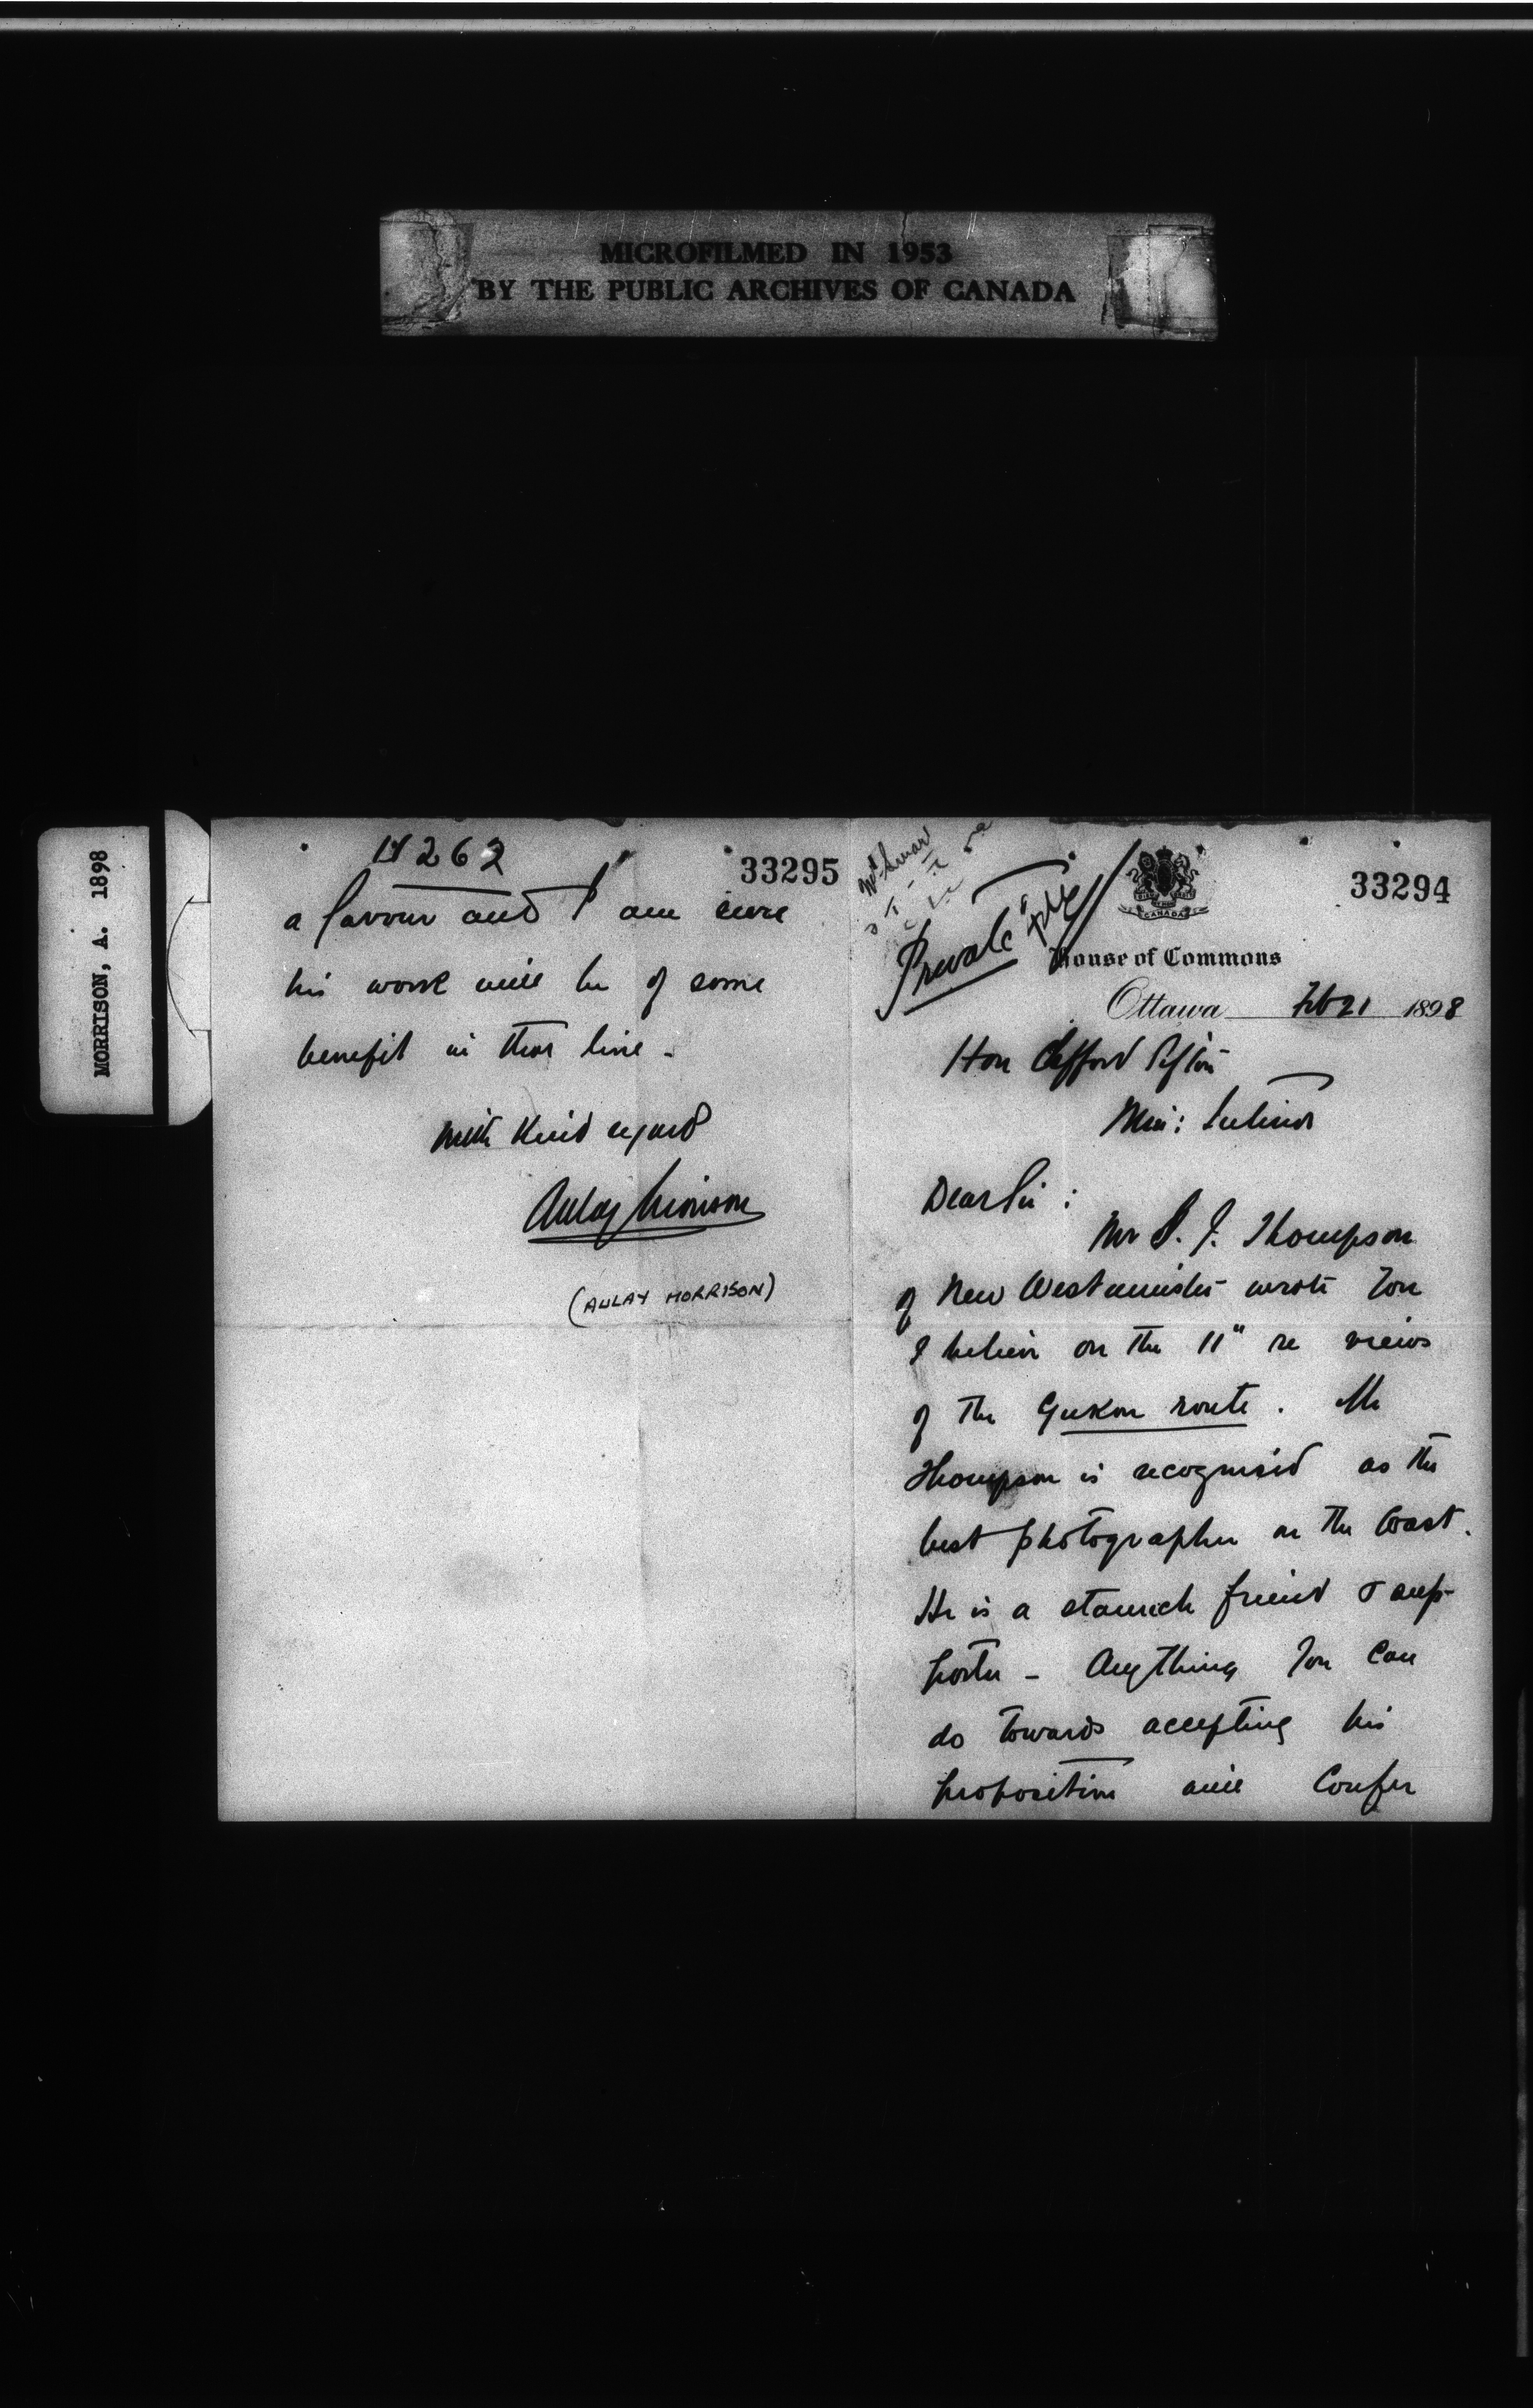 MICROFILMED IN 1953
BY THE PUBLIC ARCHIVES OF CANADA
MORRISON, A. 1898
33294
Private
CANADA
House of Commons
Ottawa Feb 21 1898
Hon Clifford Sifton
Min: Interior
Dear Sir :
Mr S. J. Thompson
of New Westminster wrote you
I believe on the 11" re views
of the Yukon route. Mr
Thompson is recognised as the
best photographer on the Coast.
He is a staunch friend & sup-
porter - Anything you can
do towards accepting his
proposition will confer
262
33295
a favour and I am sure
his work will be of some
benefit in that line -
With kind regard
Aulay Morrison
(AULAY MORRISON)